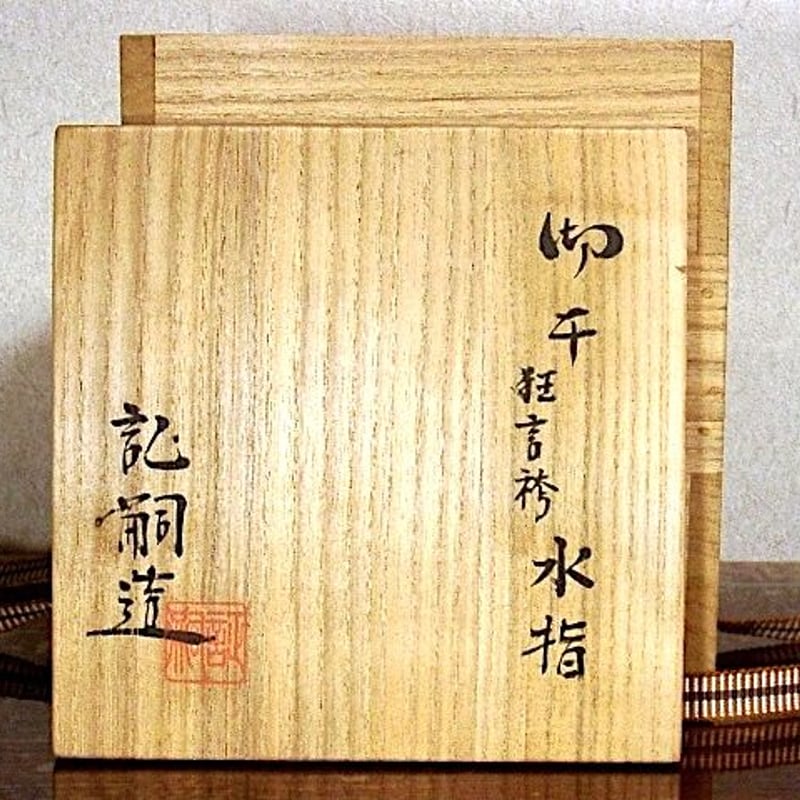 御本 狂言袴 水指
記嗣造